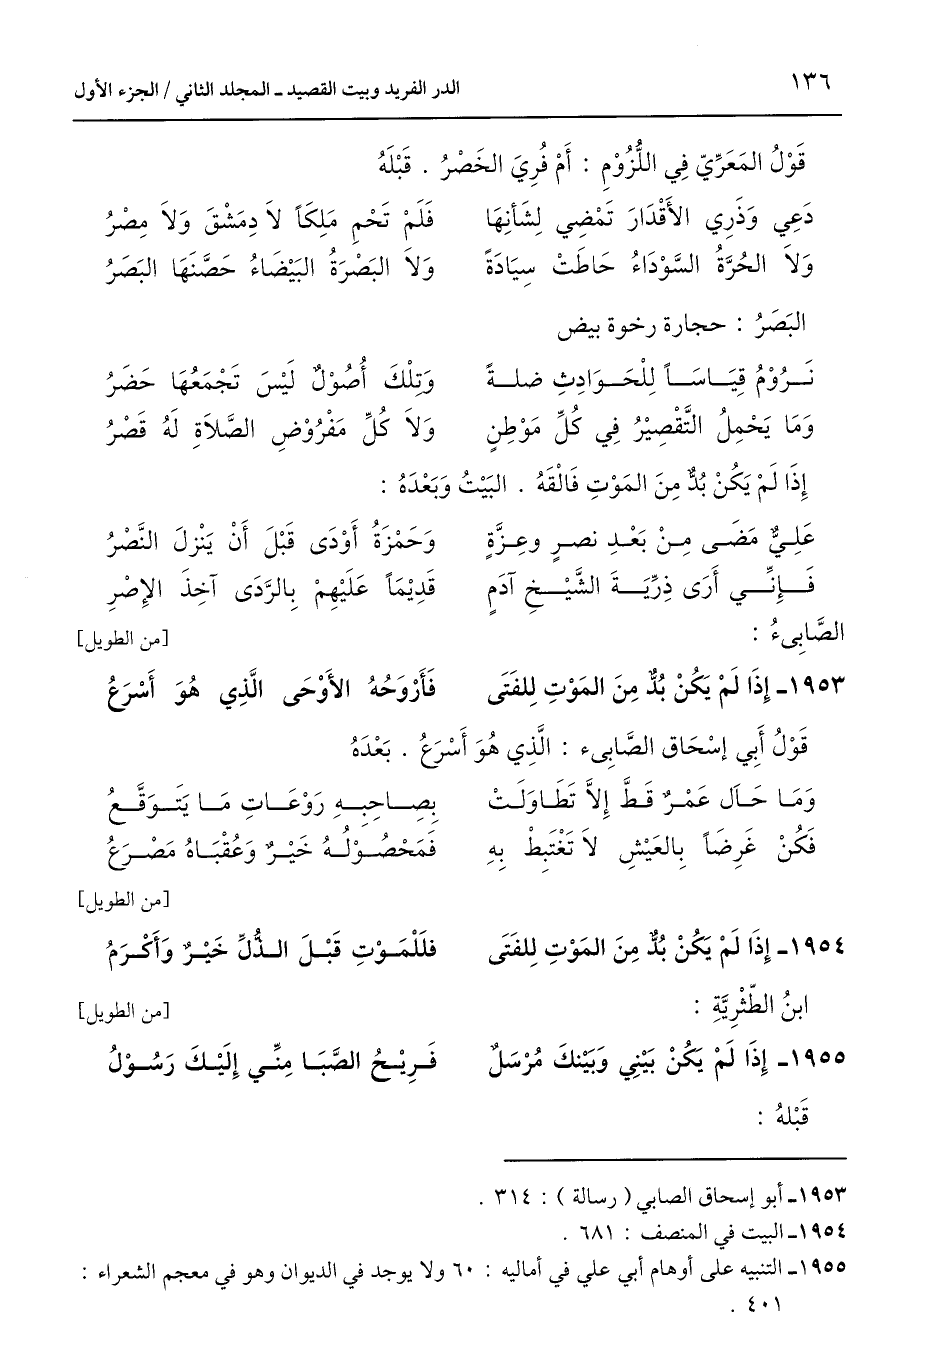 ١٣٦ الدر الفريد وبيت القصيد ـ المجلد الثاني / الجزء الأول
قَوْلُ المَعَرِّيّ فِي اللُّزُوْمِ : أَمْ فُرِيَ الخَصْرُ . قَبْلَهُ
دَعِي وَذَرِي الأَقْدَارَ تَمْضِي لِشَأنِهَا فَلَمْ تَحْمِ مَلِكَاً لاَ دِمَشْقَ وَلاَ مِصْرُ
وَلاَ الحُرَّةُ السَّوْدَاءُ حَاطَتْ سِيَادَةً وَلاَ البَصْرَةُ البَيْضَاءُ حَصَّنَهَا البَصَرُ
البَصَرُ : حجارة رخوة بيض
نَرُوْمُ قِيَاسَاً لِلْحَوَادِثِ ضلةً وَتِلْكَ أُصُوْلٌ لَيْسَ تَجْمَعُهَا حَضَرُ
وَمَا يَحْمِلُ التَّقْصِيْرُ فِي كُلِّ مَوْطِنٍ وَلاَ كُلِّ مَفْرُوْضِ الصَّلاَةِ لَهُ قَصْرُ
إِذَا لَمْ يَكُنْ بُدٌّ مِنَ المَوْتِ فَالْقَهُ . البَيْتُ وَبَعْدَهُ :
عَلِيٌّ مَضَى مِنْ بَعْدِ نصرٍ وعِزَّةٍ وَحَمْزَةُ أَوْدَى قَبْلَ أَنْ يَنْزلَ النَّصْرُ
فَإِنِّي أَرَى ذرِّيَةَ الشَّيْخِ آدَمٍ قَدِيْمَاً عَلَيْهِمْ بِالرَّدَى آخِذَ الإِصْرِ
الصَّابِىءُ : [من الطويل]
١٩٥٣ـ إِذَا لَمْ يَكُنْ بُدٌّ مِنَ المَوْتِ لِلفَتَى فَأَرْوَحُهُ الأَوْحَى الَّذِي هُوَ أَسْرَعُ
قَوْلُ أَبِي إِسْحَاق الصَّابِىء : الَّذِي هُوَ أَسْرَعُ . بَعْدَهُ
وَمَا حَال عَمْرٌ قَطَّ إِلاَّ تَطَاوَلَتْ بِصَاحِبِهِ رَوْعَاتِ مَا يَتَوَقَّعُ
فَكُنْ غَرِضَاً بِالعَيْشِ لاَ تَغْتَبِطْ بِهِ فَمَحْصُوْلُهُ خَيْرٌ وَعُقْبَاهُ مَصْرَعُ
[من الطويل]
١٩٥٤ـ إِذَا لَمْ يَكُنْ بُدٌّ مِنَ المَوْتِ لِلفَتَى فلَلْمَوْتِ قَبْلَ الذُّلِّ خَيْرٌ وَأَكْرَمُ
ابنُ الطّثْرِيَّةِ : [من الطويل]
١٩٥٥ـ إِذَا لَمْ يَكُنْ بَيْنِي وَبَيْنكَ مُرْسَلٌ فَرِيْحُ الصَّبَا مِنِّي إِلَيْكَ رَسُوْلُ
قَبْلهُ :
١٩٥٣ـ أبو إسحاق الصابي ( رسالة ) : ٣١٤ .
١٩٥٤ـ البيت في المنصف : ٦٨١ .
١٩٥٥ـ التنبيه على أوهام أبي علي في أماليه : ٦٠ ولا يوجد في الديوان وهو في معجم الشعراء :
٤٠١ .